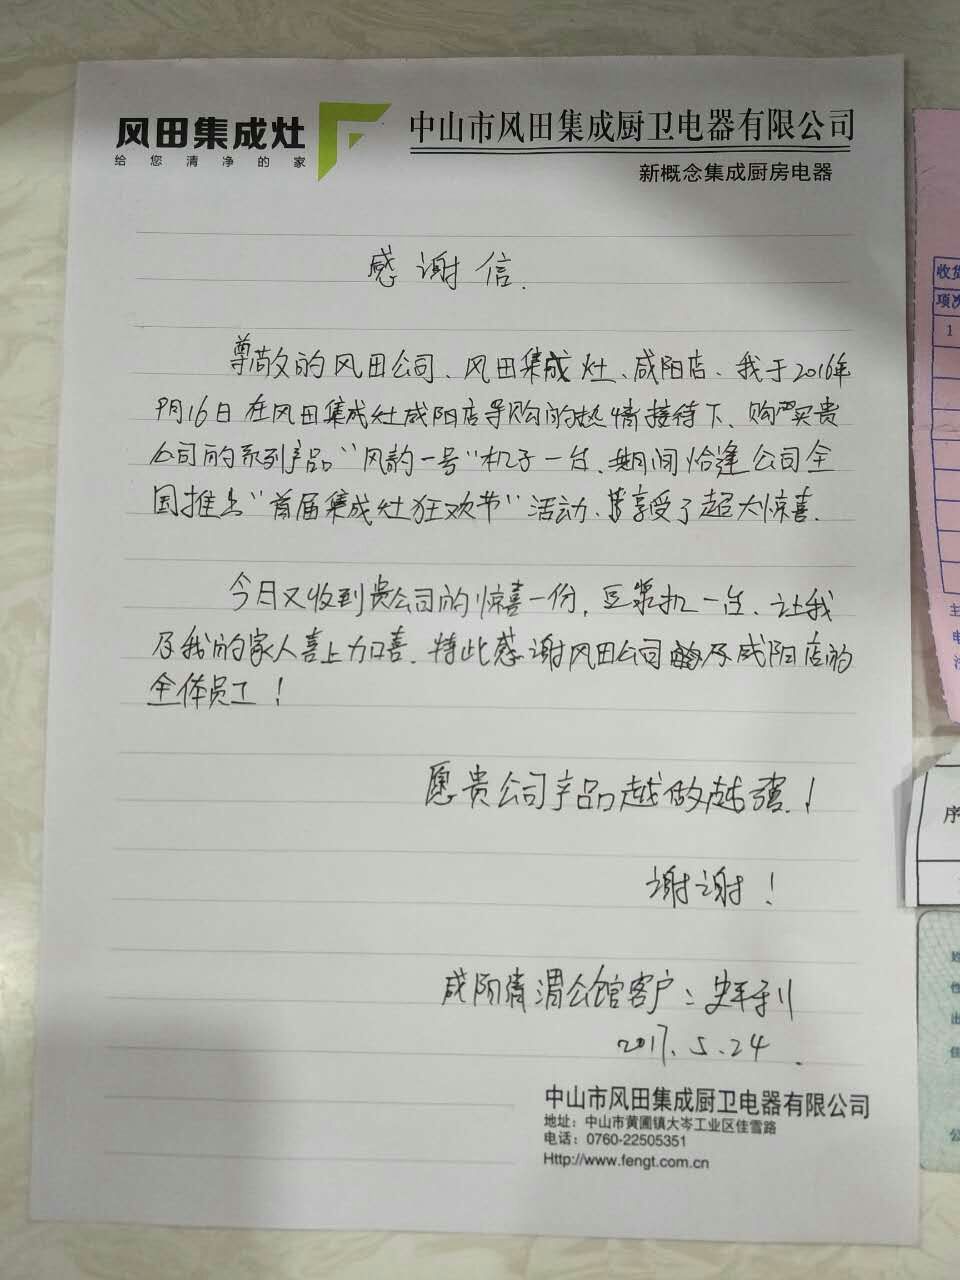 风田集成灶
给您清净的家
中山市风田集成厨卫电器有限公司
新概念集成厨房电器
感谢信.
尊敬的风田公司、风田集成灶、咸阳店、我于2016年
9月16日在风田集成灶咸阳店导购的热情接待下、购买贵
公司的系列产品"风韵一号"机子一台、期间恰逢公司全
国推出"首届集成灶狂欢节"活动、享受了超大惊喜.
今日又收到贵公司的惊喜一份,豆浆机一台、让我
及我的家人喜上加喜.特此感谢风田公司及咸阳店的
全体员工!
愿贵公司产品越做越强.!
谢谢!
咸阳清渭公馆客户:
2017.5.24.
中山市风田集成厨卫电器有限公司
地址:中山市黄圃镇大岑工业区佳雪路
电话:0760-22505351
Http://www.fengt.com.cn
收货
项次
1
主
电
序
姓
性
出
住
公